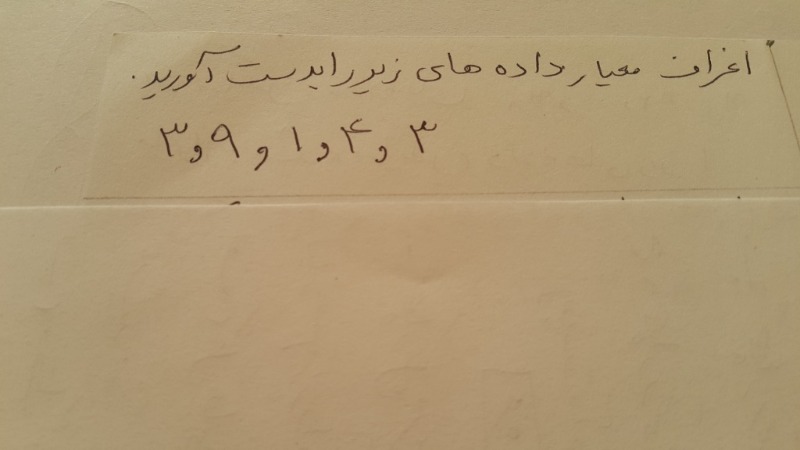 انحراف معیار داده های زیر را بدست آورید.
۳ و ۴ و ۱ و ۹ و ۳